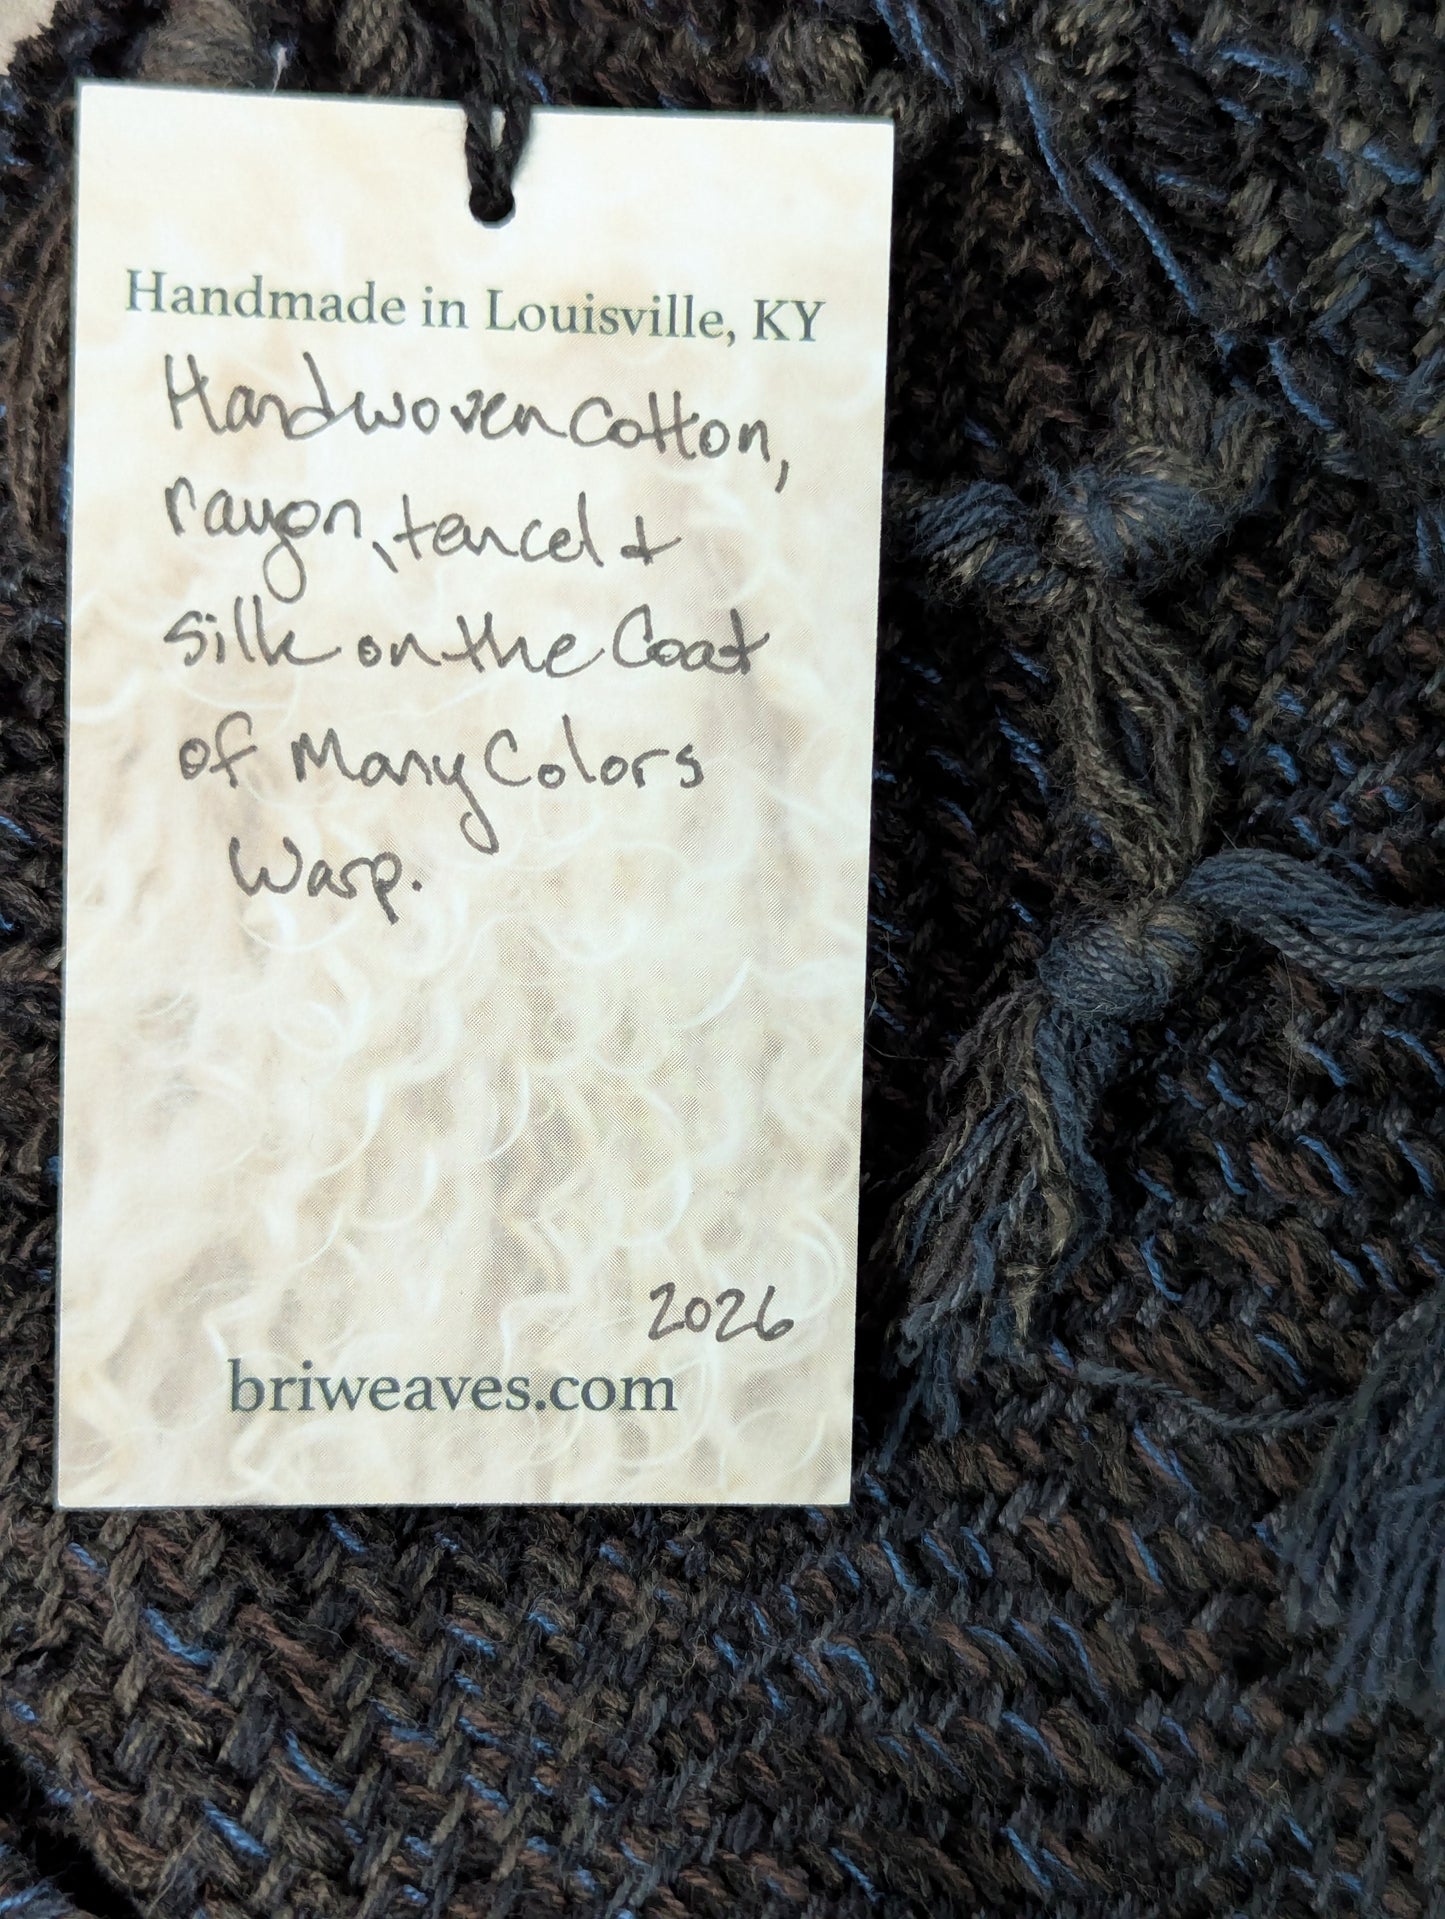 Handmade in Louisville, KY
Handwoven Cotton,
rayon, tencel &
silk on the Coat
of Many Colors
Warp.
2026
briweaves.com